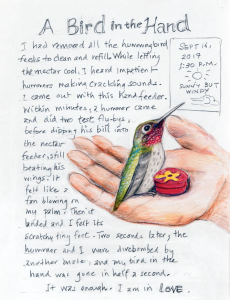 A Bird in the Hand
I had removed all the hummingbird
feeders to clean and refill. While letting
the nectar cool, I heard impatient
hummers making crackling sounds.
I came out with this handfeeder.
Within minutes, a hummer came
and did two test fly-bys,
before dipping his bill into
the nectar
feeder, still
beating his
wings. It
felt like a
fan blowing on
my palm. Then it
landed and I felt its
scratchy tiny feet. Two seconds later, the
hummer and I were divebombed by
another male, and my bird in the
hand was gone in half a second.
It was enough. I am in LOVE.
SEPT 16,
2017
5:30 P.M.
SUNNY BUT
WINDY